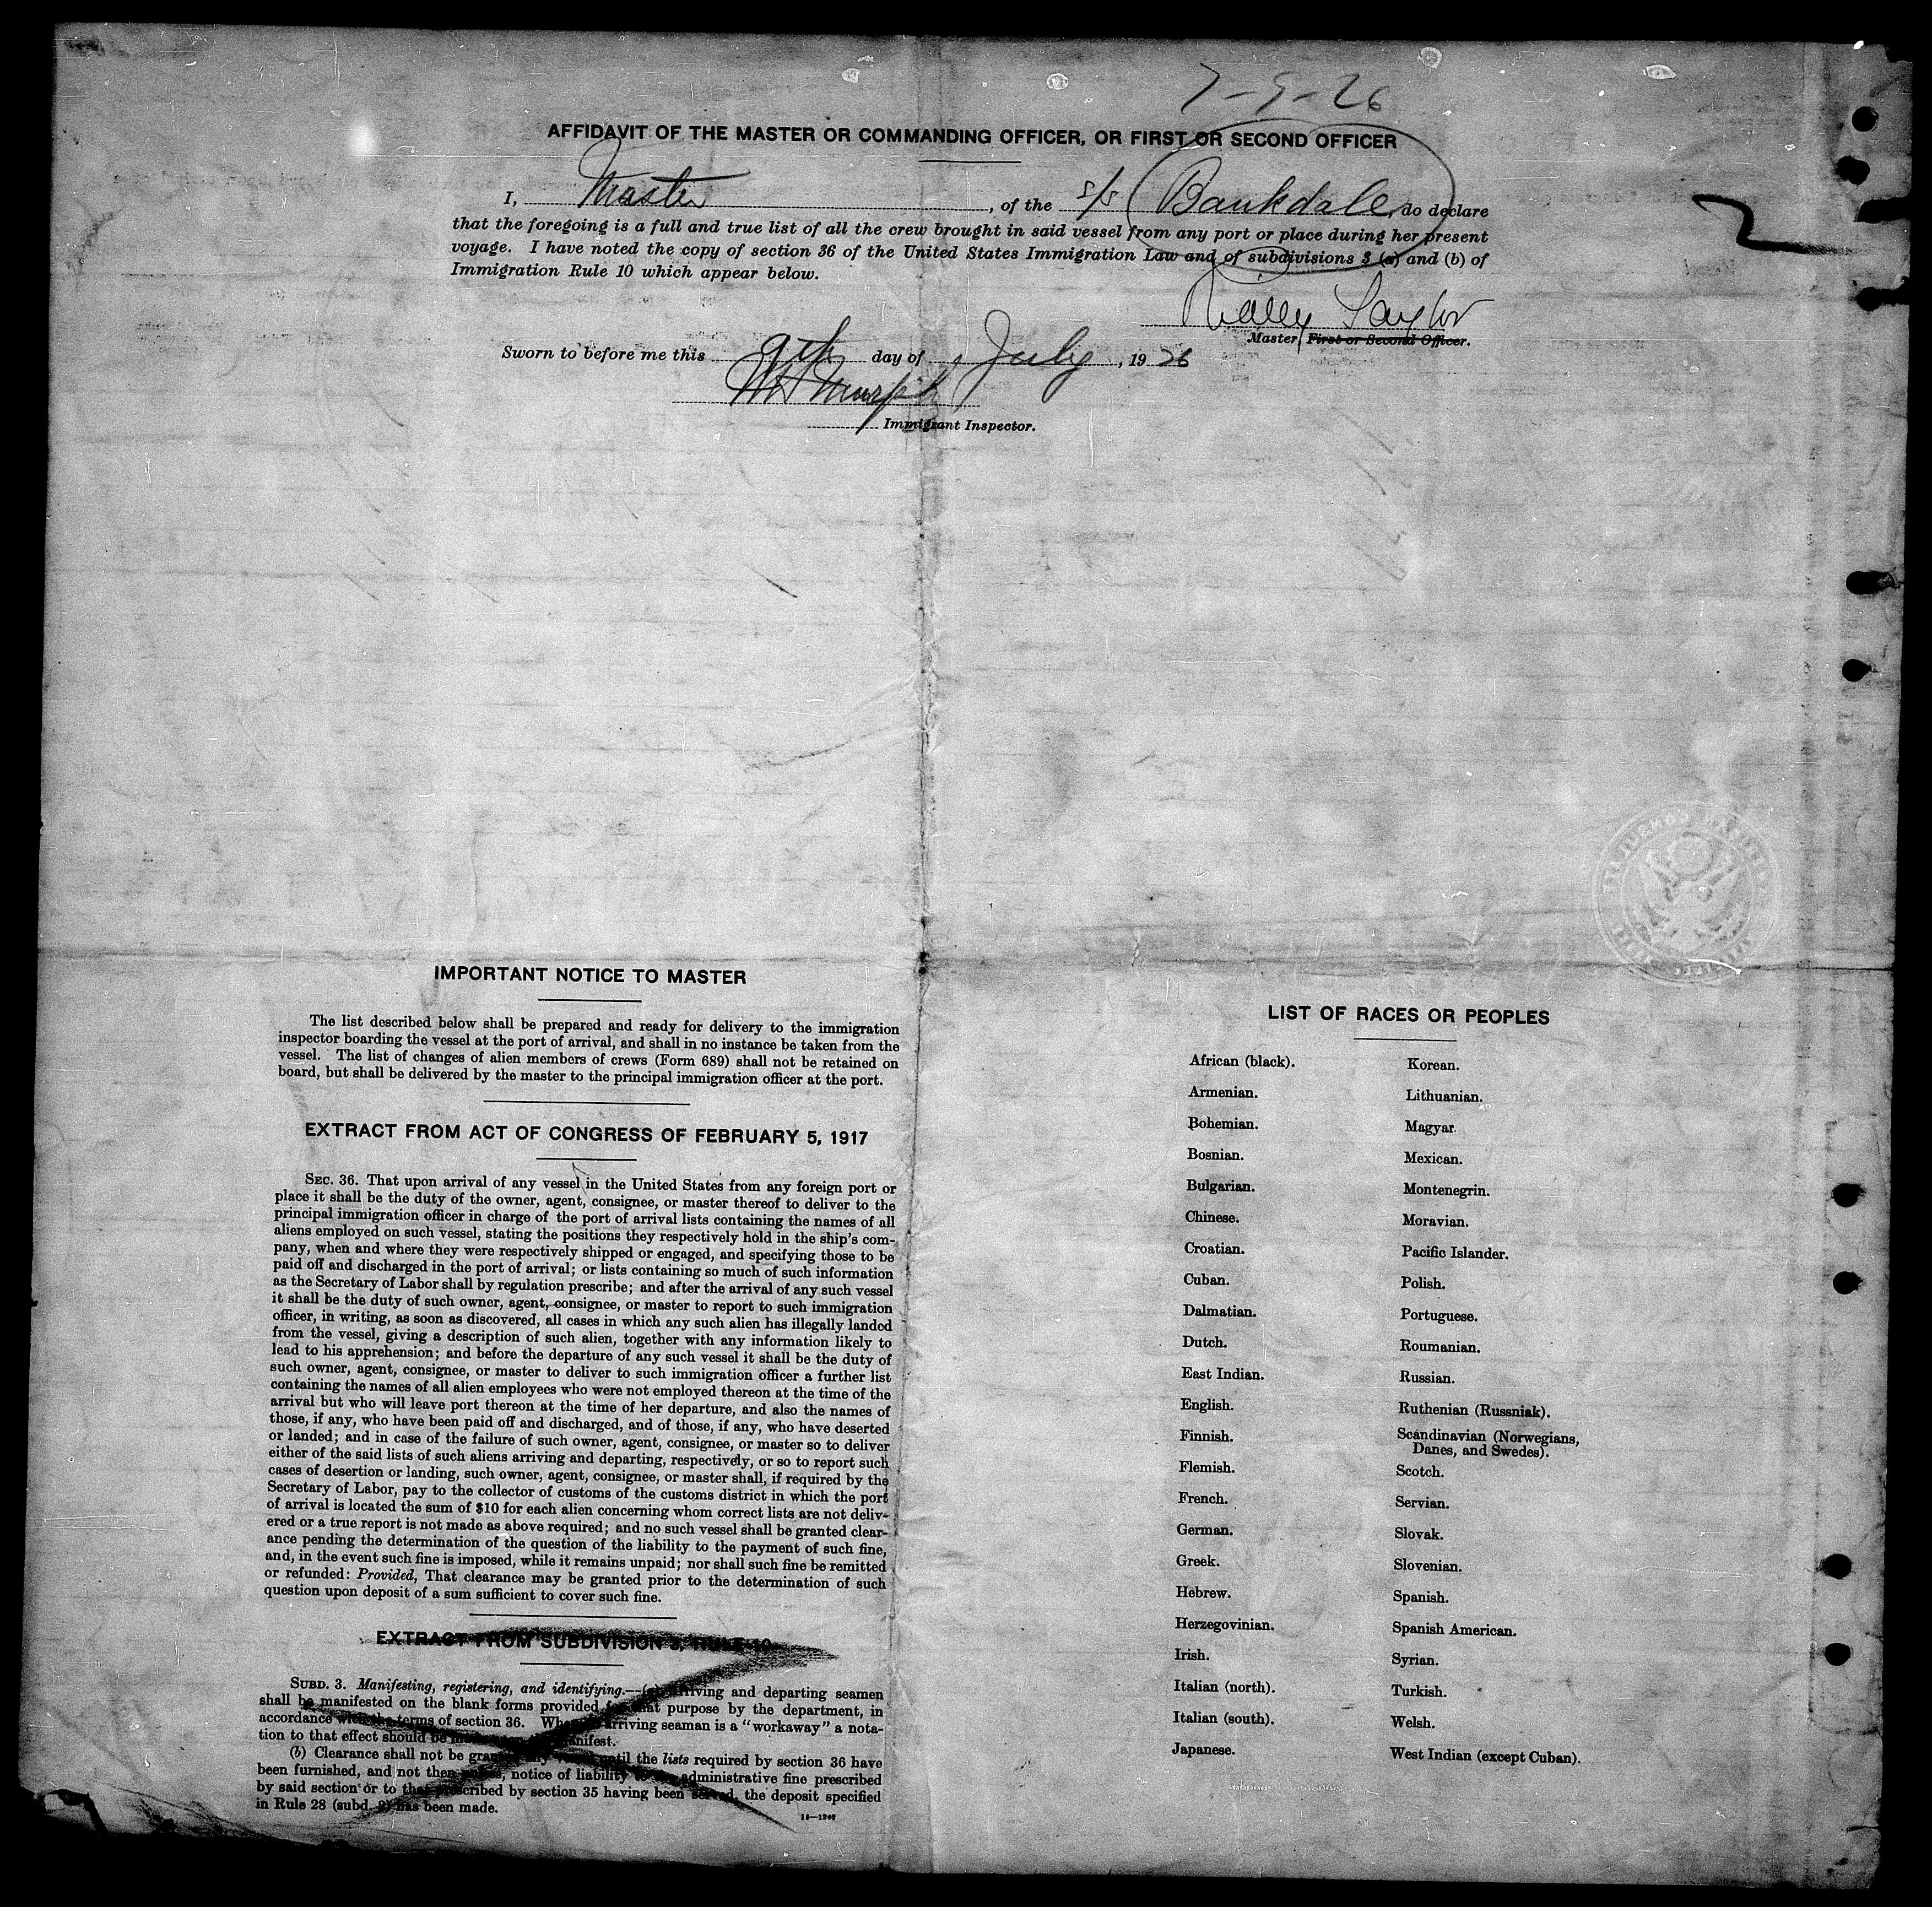 7-9-26
AFFIDAVIT OF THE MASTER OR COMMANDING OFFICER, OR FIRST OR SECOND OFFICER
I, Master, of the s/s Bankdale, do declare
that the foregoing is a full and true list of all the crew brought in said vessel from any port or place during her present
voyage. I have noted the copy of section 36 of the United States Immigration Law and of subdivisions 3 (a) and (b) of
Immigration Rule 10 which appear below.
Taylor
Master, First or Second Officer.
Sworn to before me this 9th day of July, 1926
Immigrant Inspector.
IMPORTANT NOTICE TO MASTER
The list described below shall be prepared and ready for delivery to the immigration
inspector boarding the vessel at the port of arrival, and shall in no instance be taken from the
vessel. The list of changes of alien members of crews (Form 689) shall not be retained on
board, but shall be delivered by the master to the principal immigration officer at the port.
EXTRACT FROM ACT OF CONGRESS OF FEBRUARY 5, 1917
SEC. 36. That upon arrival of any vessel in the United States from any foreign port or
place it shall be the duty of the owner, agent, consignee, or master thereof to deliver to the
principal immigration officer in charge of the port of arrival lists containing the names of all
aliens employed on such vessel, stating the positions they respectively hold in the ship's com-
pany, when and where they were respectively shipped or engaged, and specifying those to be
paid off and discharged in the port of arrival; or lists containing so much of such information
as the Secretary of Labor shall by regulation prescribe; and after the arrival of any such vessel
it shall be the duty of such owner, agent, consignee, or master to report to such immigration
officer, in writing, as soon as discovered, all cases in which any such alien has illegally landed
from the vessel, giving a description of such alien, together with any information likely to
lead to his apprehension; and before the departure of any such vessel it shall be the duty of
such owner, agent, consignee, or master to deliver to such immigration officer a further list
containing the names of all alien employees who were not employed thereon at the time of the
arrival but who will leave port thereon at the time of her departure, and also the names of
those, if any, who have been paid off and discharged, and of those, if any, who have deserted
or landed; and in case of the failure of such owner, agent, consignee, or master so to deliver
either of the said lists of such aliens arriving and departing, respectively, or so to report such
cases of desertion or landing, such owner, agent, consignee, or master shall, if required by the
Secretary of Labor, pay to the collector of customs of the customs district in which the port
of arrival is located the sum of $10 for each alien concerning whom correct lists are not deliv-
ered or a true report is not made as above required; and no such vessel shall be granted clear-
ance pending the determination of the question of the liability to the payment of such fine,
and, in the event such fine is imposed, while it remains unpaid; nor shall such fine be remitted
or refunded: Provided, That clearance may be granted prior to the determination of such
question upon deposit of a sum sufficient to cover such fine.
EXTRACT FROM SUBDIVISION 3, RULE 10
SUBD. 3. Manifesting, registering, and identifying.—(a) Arriving and departing seamen
shall be manifested on the blank forms provided for that purpose by the department, in
accordance with the terms of section 36. When arriving seaman is a "workaway" a nota-
tion to that effect should be manifest.
(b) Clearance shall not be granted any vessel until the lists required by section 36 have
been furnished, and not then unless, notice of liability to administrative fine prescribed
by said section or to that prescribed by section 35 having been served, the deposit specified
in Rule 28 (subd. 2) has been made.
LIST OF RACES OR PEOPLES
African (black).
Armenian.
Bohemian.
Bosnian.
Bulgarian.
Chinese.
Croatian.
Cuban.
Dalmatian.
Dutch.
East Indian.
English.
Finnish.
Flemish.
French.
German.
Greek.
Hebrew.
Herzegovinian.
Irish.
Italian (north).
Italian (south).
Japanese.
Korean.
Lithuanian.
Magyar.
Mexican.
Montenegrin.
Moravian.
Pacific Islander.
Polish.
Portuguese.
Roumanian.
Russian.
Ruthenian (Russniak).
Scandinavian (Norwegians,
Danes, and Swedes).
Scotch.
Servian.
Slovak.
Slovenian.
Spanish.
Spanish American.
Syrian.
Turkish.
Welsh.
West Indian (except Cuban).